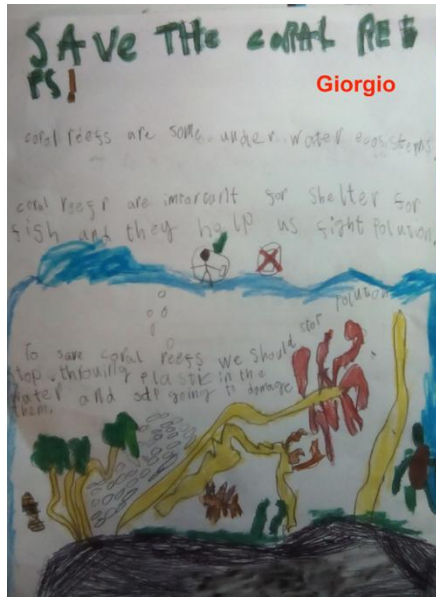 SAVE THE CORAL REE
FS!
Giorgio
coral reefs are some under water ecosystems
coral reefs are important for shelter for
fish and they help us fight polution
To save coral reefs we should stop polution
stop throuing plastic in the
water and stop going to damage
them.